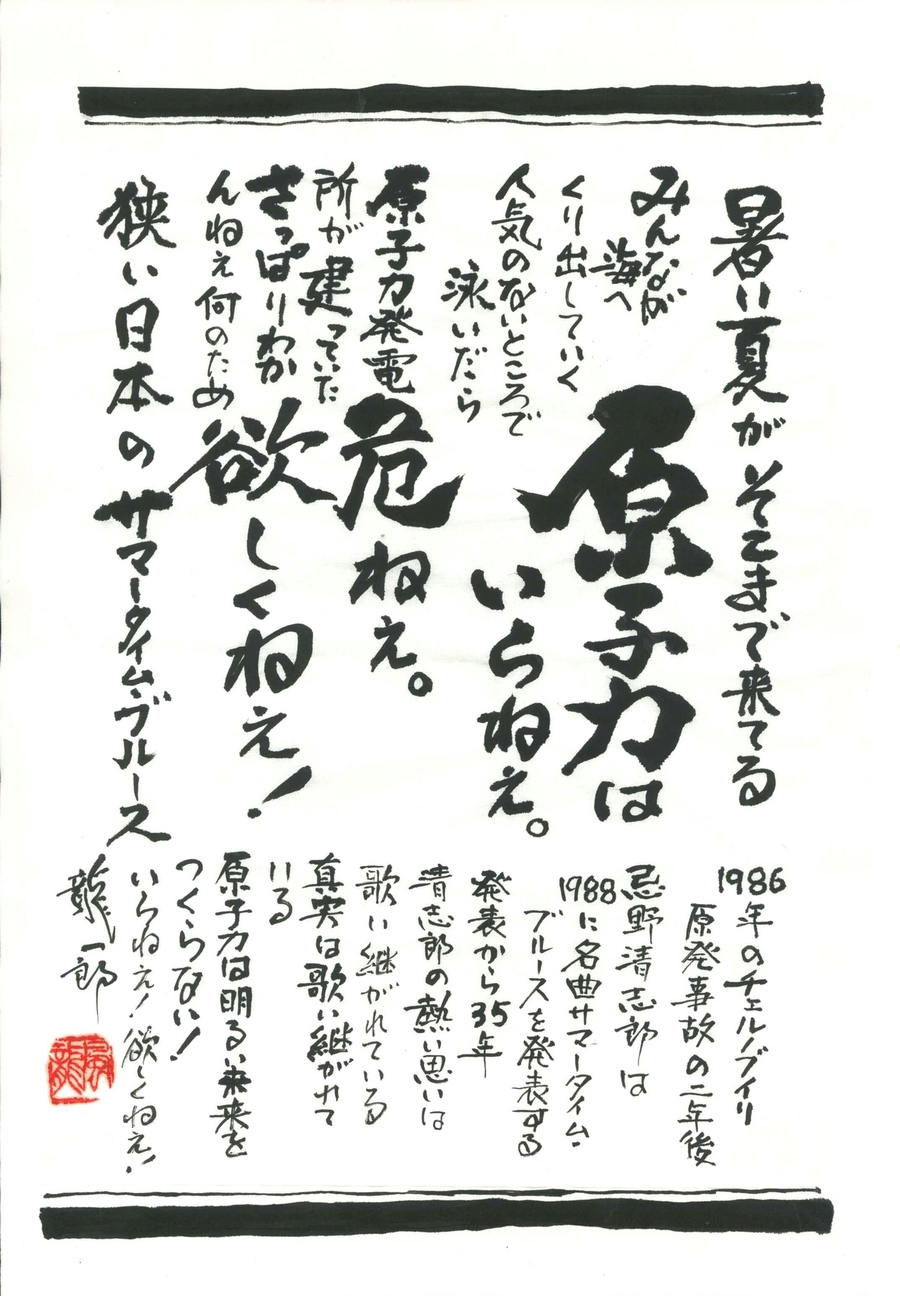 暑い夏がそこまで来てる
みんなが
海へ
くり出していく
人気のないところで
泳いだら
原子力発電
所が建っていた
さっぱりわか
んねえ何のため
原子力は
いらねえ。
危ねえ。
欲しくねえ！
狭い日本のサマータイム・ブルース
1986年のチェルノブイリ
原発事故の二年後
忌野清志郎は
1988に名曲サマータイム・
ブルースを発表する
発表から35年
清志郎の熱い思いは
歌い継がれている
真実は歌い継がれて
いる
原子力は明るい未来を
つくらない！
いらねえ！欲しくねえ！
龍一郎